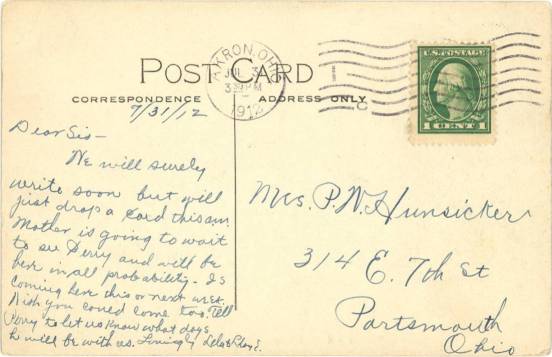 POST CARD
CORRESPONDENCE
ADDRESS ONLY
AKRON, OHIO
JUL 31
3 30 PM
1912
U.S. POSTAGE
1 CENT 1
7/31/12
Dear Sis—
We will surely
write soon but will
just drop a card this am.
Mother is going to wait
to see Perry and will be
here in all probability. Is
coming here this or next week.
Wish you could come too. Tell
Perry to let us know what days
he will be with us. Lovingly
Mrs. P. W. Hunsicker
314 E. 7th St
Portsmouth
Ohio